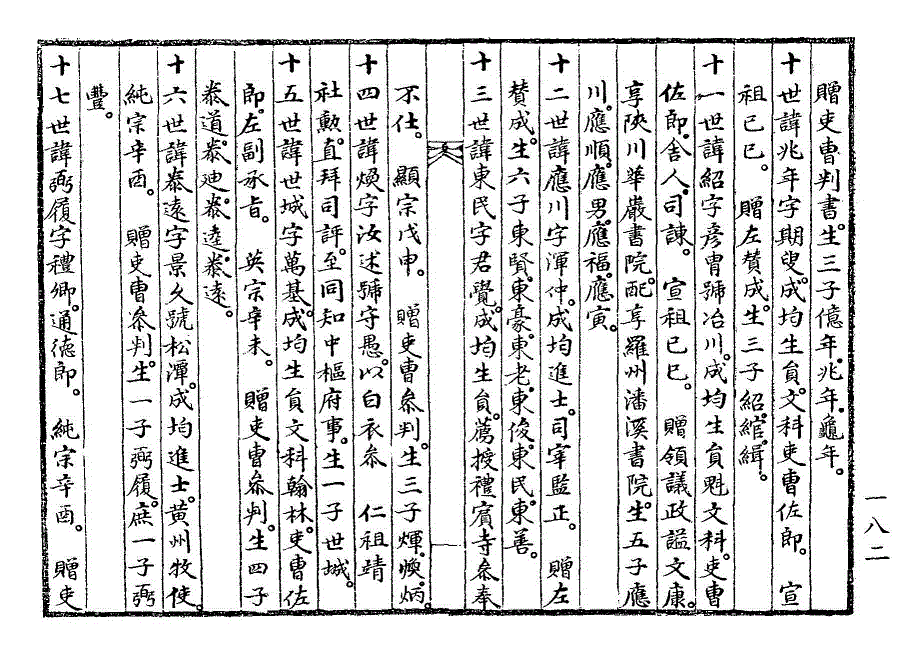 贈吏曹判書。生三子億年.兆年.龜年。
十世諱兆年字期叟。成均生員。文科吏曹佐郎。 宣
祖己巳。 贈左贊成。生三子紹.綰緝。
十一世諱紹字彦胄號冶川。成均生員魁文科。吏曹
佐郎.舍人.司諫。 宣祖己巳。 贈領議政謚文康。
享陜川華巖書院。配享羅州潘溪書院。生五子應
川.應順.應男.應福.應寅。
十二世諱應川字渾仲。成均進士。司宰監正。 贈左
贊成。生六子東賢.東豪.東老.東俊.東民.東善。
十三世諱東民字君覺。成均生員。薦授禮賓寺參奉
不仕。 顯宗戊申。 贈吏曹參判。生三子煇.煥.炳。
十四世諱煥字汝述號守愚。以白衣參 仁祖靖
社勳。直拜司評。至同知中樞府事。生一子世城。
十五世諱世城字萬基。成均生員文科翰林。吏曹佐
郎.左副承旨。 英宗辛未。 贈吏曹參判。生四子
泰道.泰迪.泰逵.泰遠。
十六世諱泰遠字景久號松潭。成均進士。黃州牧使。
純宗辛酉。 贈吏曹參判。生一子弼履。庶一子弼
豐。
十七世諱弼履字禮卿。通德郎。 純宗辛酉。 贈吏
一八二